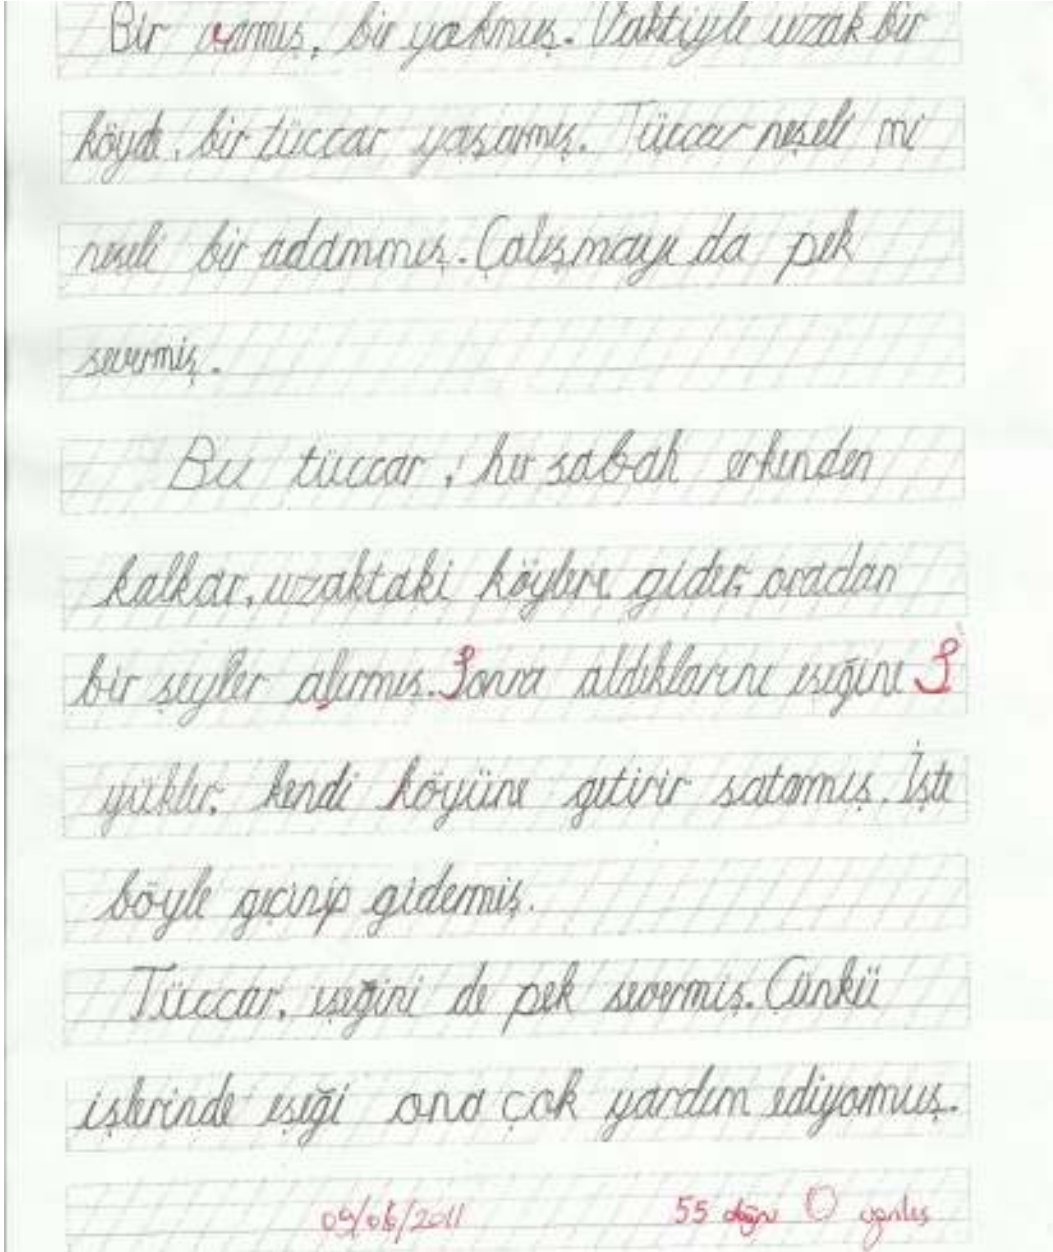 Bir varmış, bir yokmuş. Vaktiyle uzak bir
köyde, bir tüccar yaşarmış. Tüccar neşeli mi
neşeli bir adammış. Çalışmayı da pek
severmiş.
Bu tüccar, her sabah erkenden
kalkar, uzaktaki köylere gider, oradan
bir şeyler alırmış. Sonra aldıklarını eşeğine
yükler, kendi köyüne getirir satarmış. İşte
böyle geçinip gidermiş.
Tüccar, eşeğini de pek severmiş. Çünkü
işlerinde eşeği ona çok yardım ediyormuş.
09/06/2011 55 doğru 0 yanlış